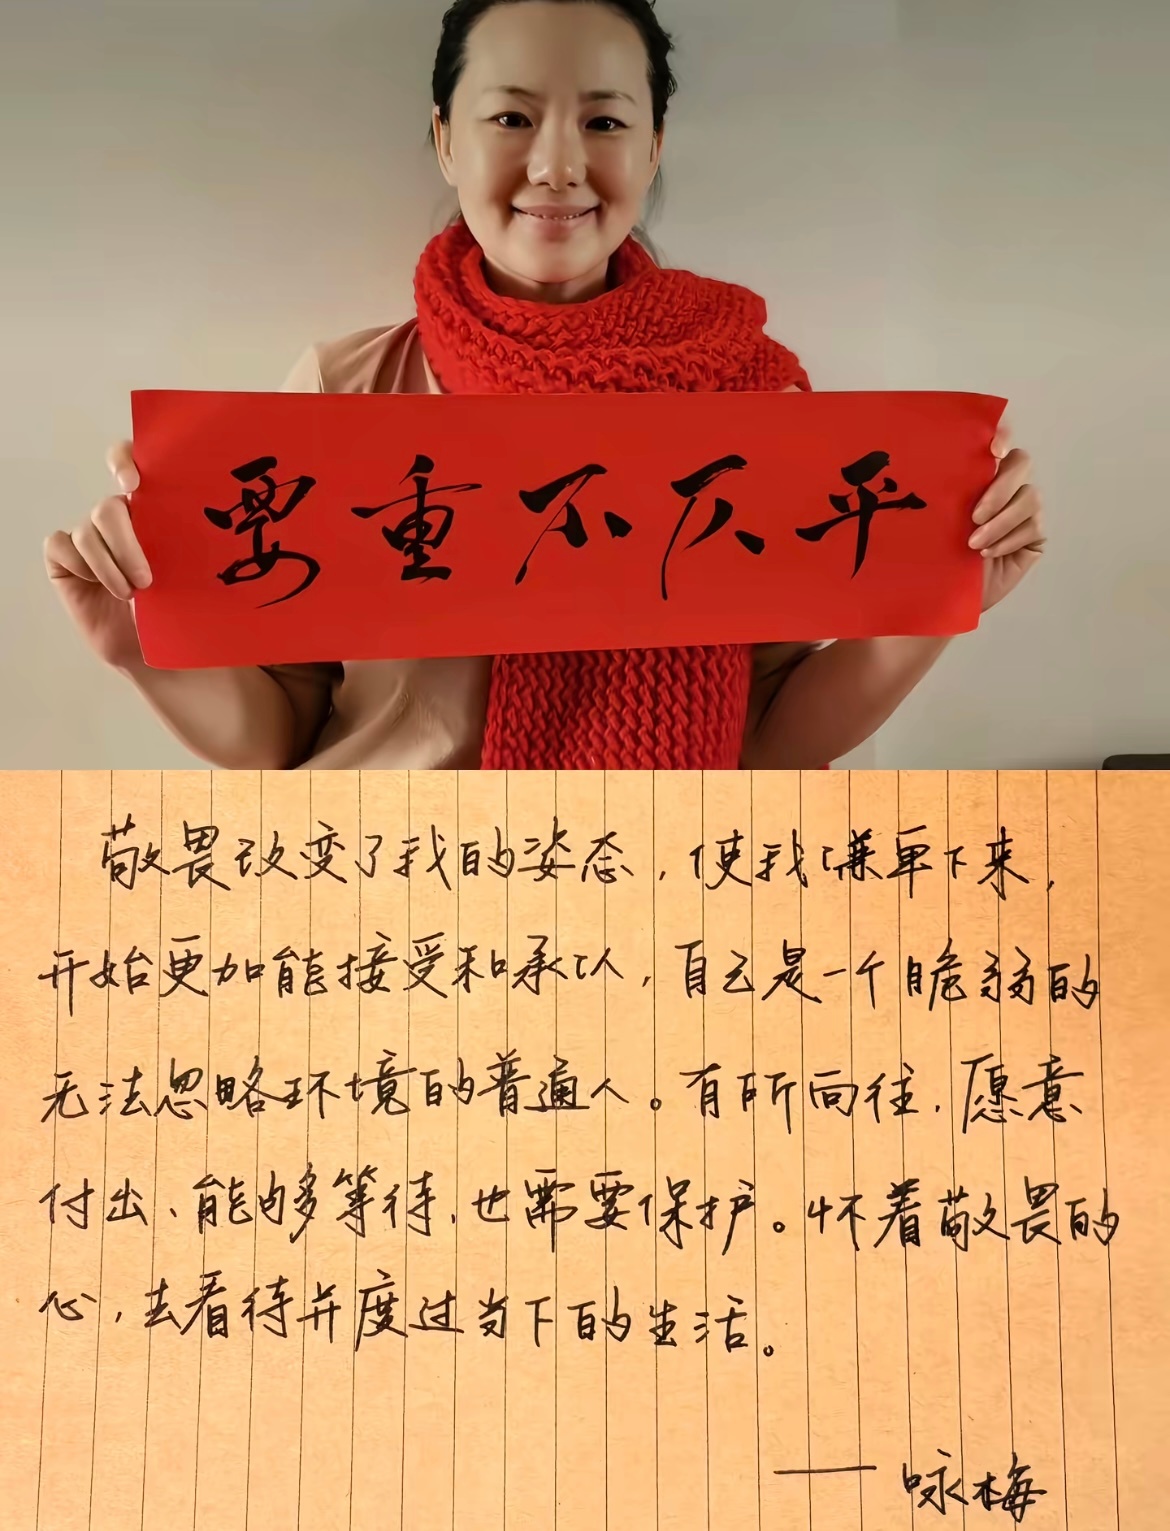 要重不仄平
敬畏改变了我的姿态，使我谦卑下来，
开始更加能接受和承认，自己是一个脆弱的
无法忽略环境的普通人。有所向往、愿意
付出、能够等待、也需要保护。怀着敬畏的
心，去看待并度过当下的生活。
——咏梅